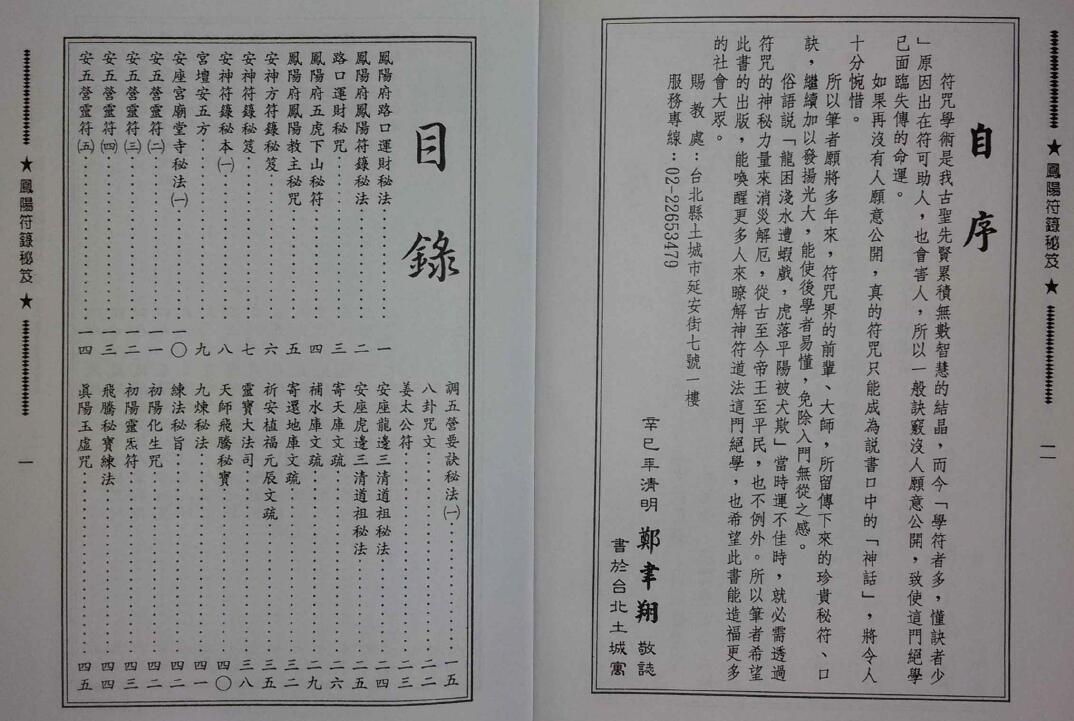 ★鳳陽符籙秘笈★
二
自序
符咒學術是我古聖先賢累積無數智慧的結晶，而今「學符者多，懂訣者少
」原因出在符可助人，也會害人，所以一般訣竅沒人願意公開，致使這門絕學
已面臨失傳的命運。
如果再沒有人願意公開，真的符咒只能成為說書口中的「神話」，將令人
十分惋惜。
所以筆者願將多年來，符咒界的前輩、大師，所留傳下來的珍貴秘符、口
訣，繼續加以發揚光大，能使後學者易懂，免除入門無從之感。
俗語說「龍困淺水遭蝦戲，虎落平陽被犬欺」當時運不佳時，就必需透過
符咒的神秘力量來消災解厄，從古至今帝王至平民，也不例外。所以筆者希望
此書的出版，能喚醒更多人來瞭解神符道法這門絕學，也希望此書能造福更多
的社會大眾。
賜教處：台北縣土城市延安街七號一樓
服務專線：02-22653479
辛巳年清明 鄭聿翔 敬誌
書於台北土城寓
目錄
鳳陽府路口運財秘法……一
鳳陽府鳳陽符籙秘法……二
路口運財秘咒……三
鳳陽府五虎下山秘符……四
鳳陽府鳳陽教主秘咒……五
安神方符籙秘笈……六
安神符籙秘笈……七
安神符籙秘本㈠……八
宮壇安五方……九
安座宮廟堂寺秘法㈠……一〇
安五營靈符㈡……一一
安五營靈符㈢……一二
安五營靈符㈣……一三
安五營靈符㈤……一四
調五營要訣秘法㈠……一五
八卦咒文……二二
姜太公符……二三
安座龍邊三清道祖秘法……二四
安座虎邊三清道祖秘法……二五
寄天庫文疏……二六
補水庫文疏……二九
寄還地庫文疏……三二
祈安植福元辰文疏……三五
靈寶大法司……三八
天師飛騰秘寶……四〇
九煉秘法……四一
練法秘旨……四二
初陽化生咒……四二
初陽靈炁符……四三
飛騰秘寶練法……四四
真陽玉虛咒……四五
★鳳陽符籙秘笈★
一